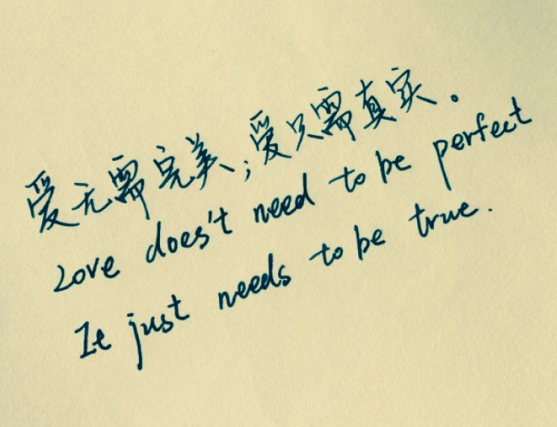 爱无需完美;爱只需真实。
Love does't need to be perfect
It just needs to be true.